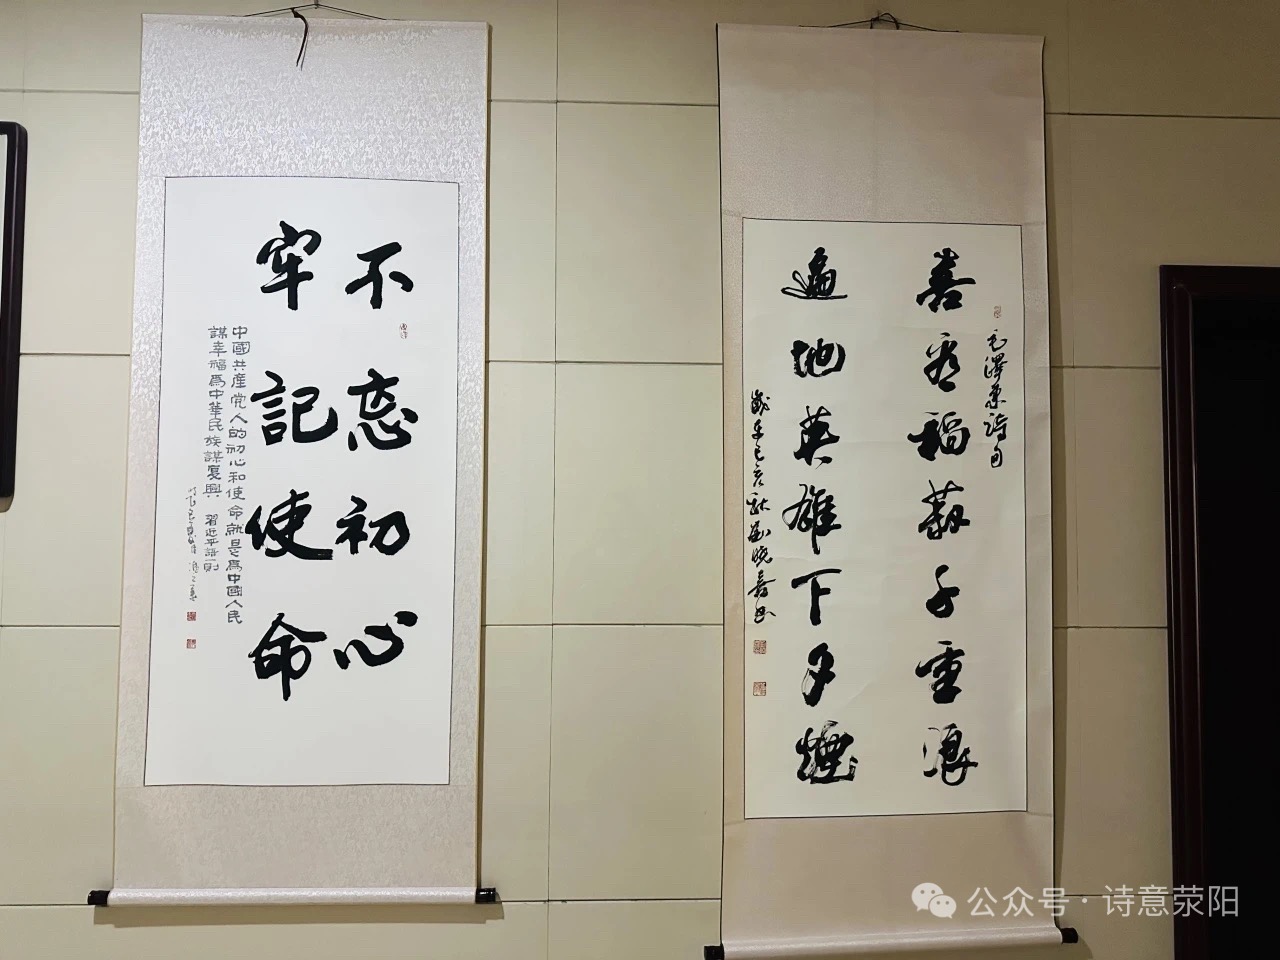 不忘初心
牢記使命
中國共產党人的初心和使命就是爲中國人民
謀幸福爲中華民族謀复興 習近平語一則
毛澤東詩句
喜看稻菽千重浪
遍地英雄下夕煙
歲在己亥秋
公众号·诗意荥阳